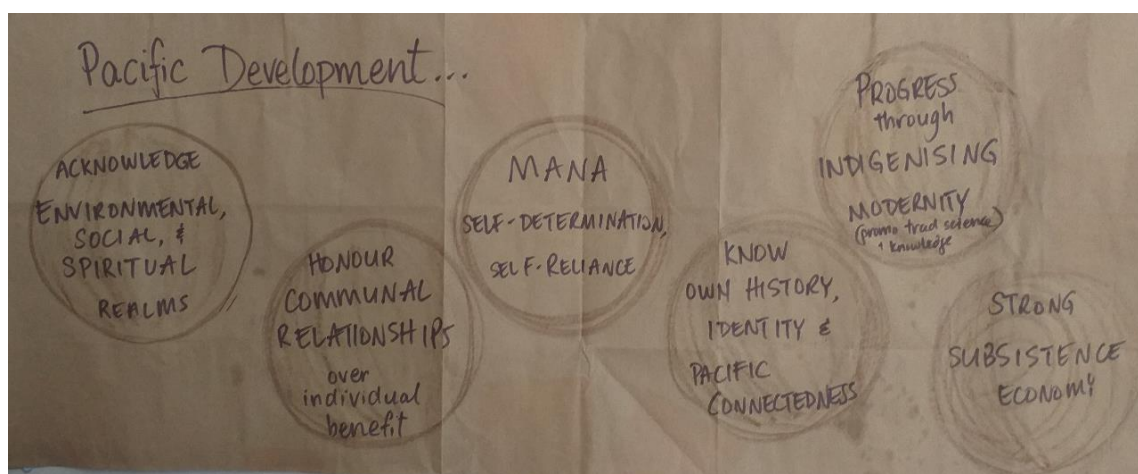 Pacific Development...
ACKNOWLEDGE
ENVIRONMENTAL,
SOCIAL, &
SPIRITUAL
REALMS
HONOUR
COMMUNAL
RELATIONSHIPS
over
individual
benefit
MANA
SELF-DETERMINATION,
SELF-RELIANCE
KNOW
OWN HISTORY,
IDENTITY &
PACIFIC
CONNECTEDNESS
PROGRESS
through
INDIGENISING
MODERNITY
(promo trad science)
+ knowledge
STRONG
SUBSISTENCE
ECONOMY